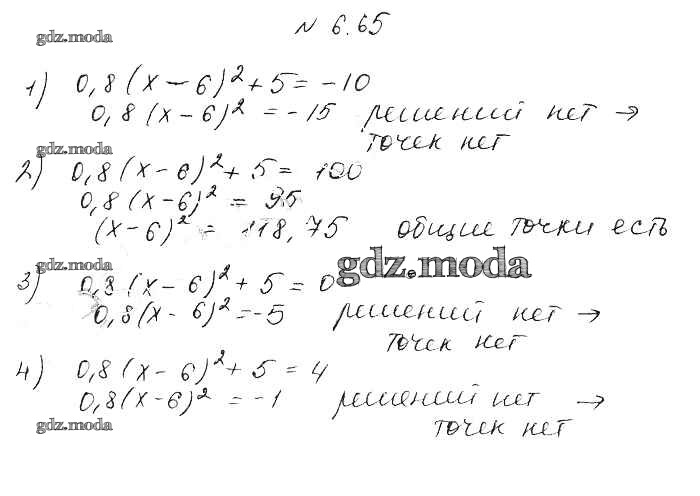 № 6.65
gdz.moda
1) 0,8(x-6)²+5=-10
0,8(x-6)²=-15 решений нет →
точек нет
gdz.moda
2) 0,8(x-6)²+5=100
0,8(x-6)²=95
(x-6)²=118,75 общие точки есть
gdz.moda
gdz.moda
3) 0,8(x-6)²+5=0
0,8(x-6)²=-5 решений нет →
точек нет
4) 0,8(x-6)²+5=4
0,8(x-6)²=-1 решений нет →
gdz.moda
точек нет